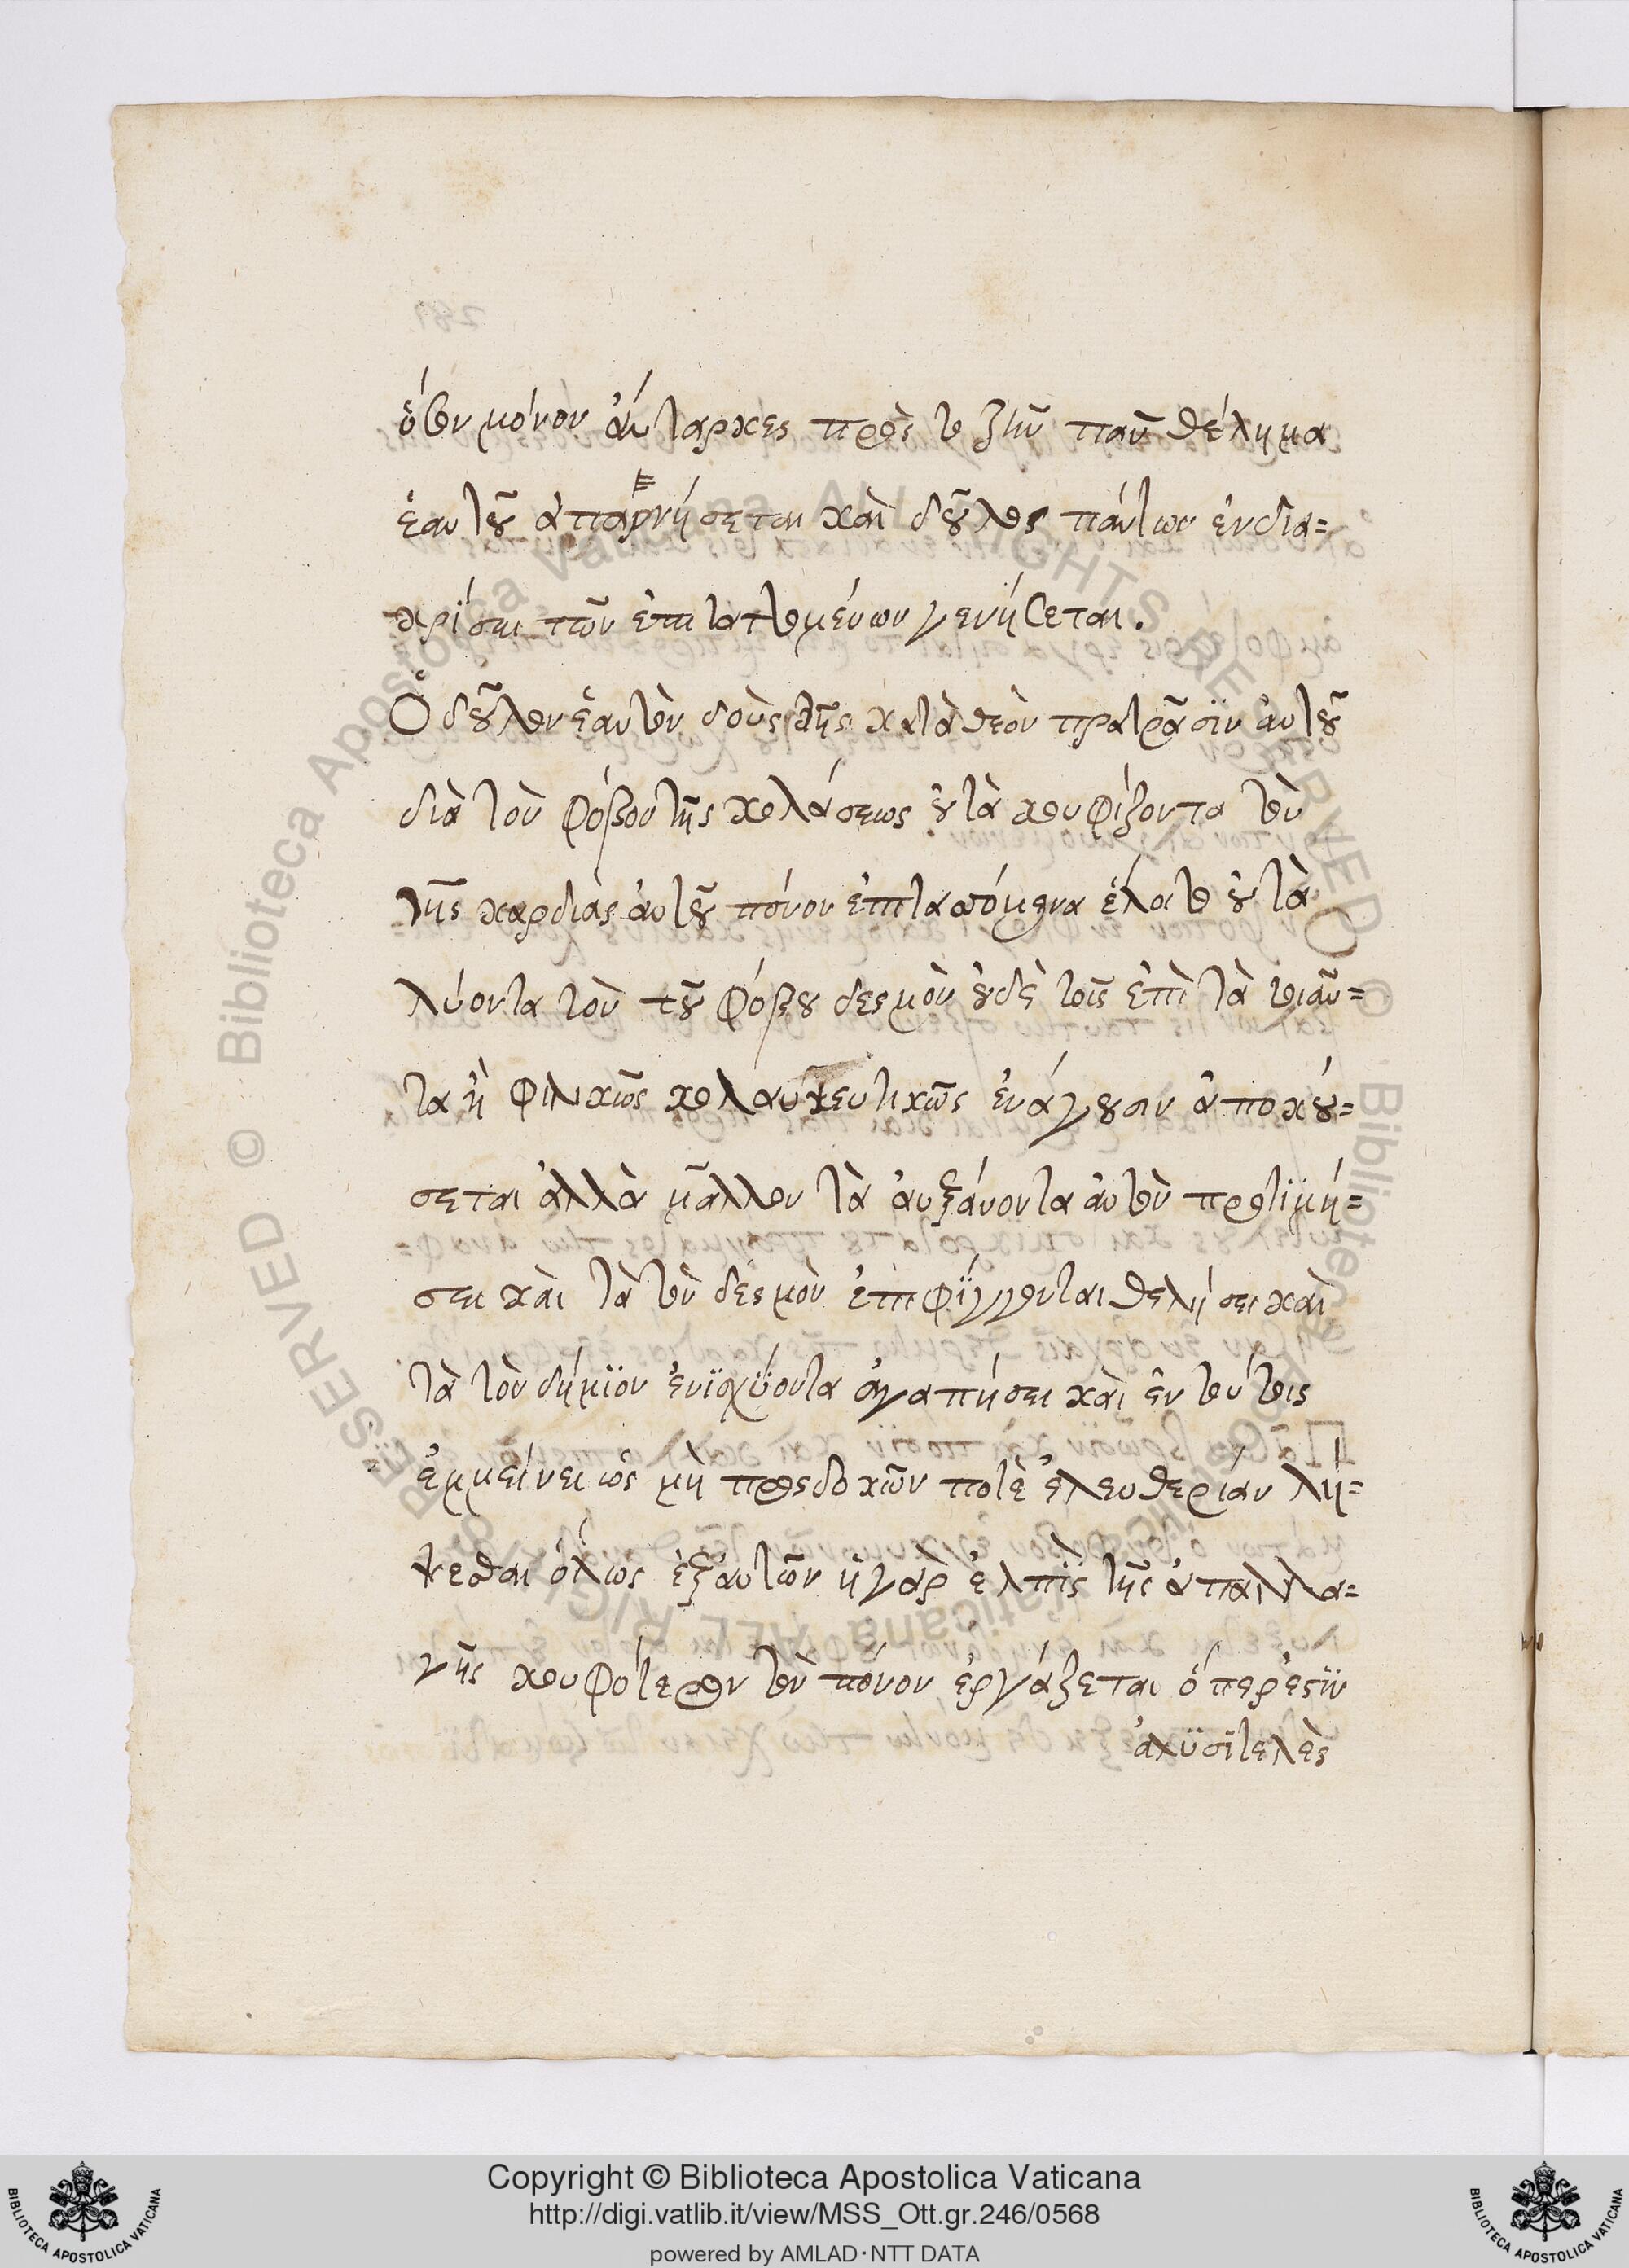 ὅθεν μόνον ἀύταρκες πρὸς τὸ ζῆν πᾶν θέλημα
ἑαυτοῦ ἀπαρνήσεται καὶ δοῦλος πάντων ἐνδια=
κρίσει τῶν ἐπιταττομένων γενήσεται.
Ὁ δοῦλον ἑαυτὸν δοὺς τῆς κατὰ θεὸν πρατρᾶσϊν ἀυτοῦ
διὰ τὸν φόβον τῆς κολάσεως οὐ τὰ κουφίζοντα τὸν
τῆς καρδίας ἀυτοῦ πόνον ἐπιταπόμενα ἕλοιτο οὐ τὰ
λύοντα τὸν τοῦ φόβου δεσμὸν οὐδὲ τοῖς ἐπὶ τὰ τοιαῦ=
τα ἢ φιλικῶς κολακευτικῶς ἐνάγουσιν ἀποκού=
σεται ἀλλὰ μᾶλλον τὰ ἀυξάνοντα ἀυτὸν προτϊμή=
σει καὶ τὰ τὸν δέσμὸν ἐπισφίγγονται θελήσει καὶ
τὰ τὸν δήμϊον ἐνϊσχΰοντα ἀγαπήσει καὶ ἐν τούτοις
ἐμμείνει ὡς μὴ προσδοκῶν ποτὲ ἐλευθερίαν λή=
ψεσθαι ὅλως ἐξἀυτῶν ἡ γὰρ ἐλπῒς τῆς ἀπαλλα=
γῆς κουφότερον τὸν πόνον ἐργάζεται ὅπερ ἐστϊν
ἀλϋσϊτελὲς
Copyright © Biblioteca Apostolica Vaticana
http://digi.vatlib.it/view/MSS_Ott.gr.246/0568
powered by AMLAD·NTT DATA